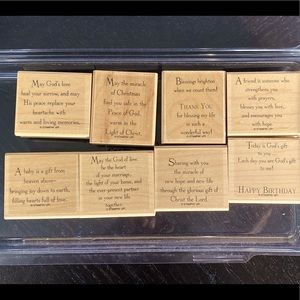 May God's love
heal your sorrow, and may
His peace replace your
heartache with
warm and loving memories.
May the miracle
of Christmas
find you safe in the
Peace of God,
warm in the
Light of Christ.
Blessings brighten
when we count them!
THANK YOU
for blessing my life
in such a
wonderful way!
A friend is someone who
strengthens you
with prayers,
blesses you with love,
and encourages you
with hope.
A baby is a gift from
heaven above—
bringing joy down to earth,
filling hearts full of love.
May the God of love
be the heart
of your marriage,
the light of your home, and
the ever-present partner
in your new life
together.
Sharing with you
the miracle of
new hope and new life
through the glorious gift of
Christ the Lord.
Today is God's gift
to you.
Each day you are God's gift
to me!
HAPPY BIRTHDAY